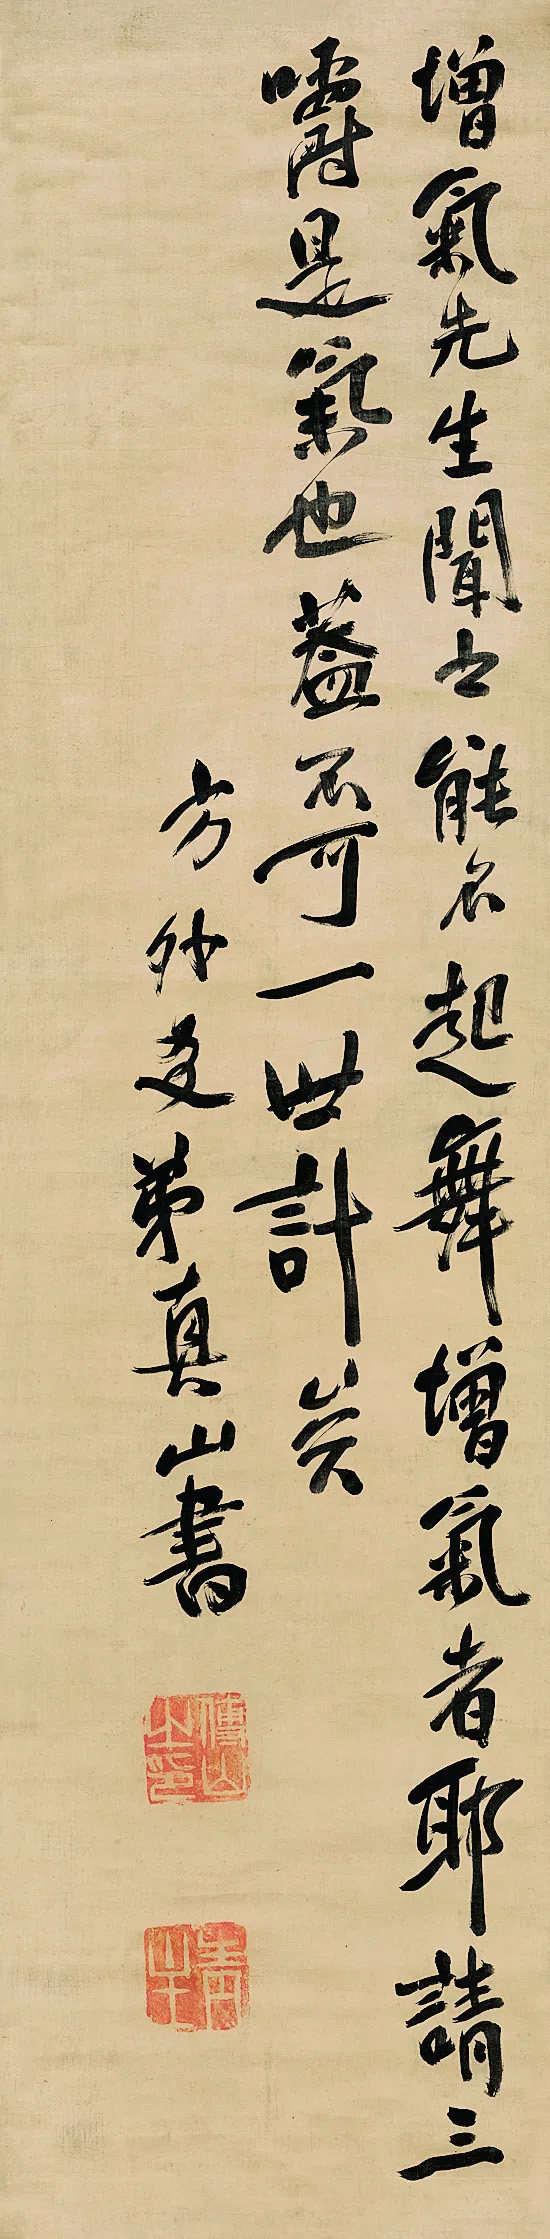 增氣先生聞之能不起舞增氣者耶請三
嚼是氣也蓋不可一世計矣
方外友弟真山書
傅山之印
青主